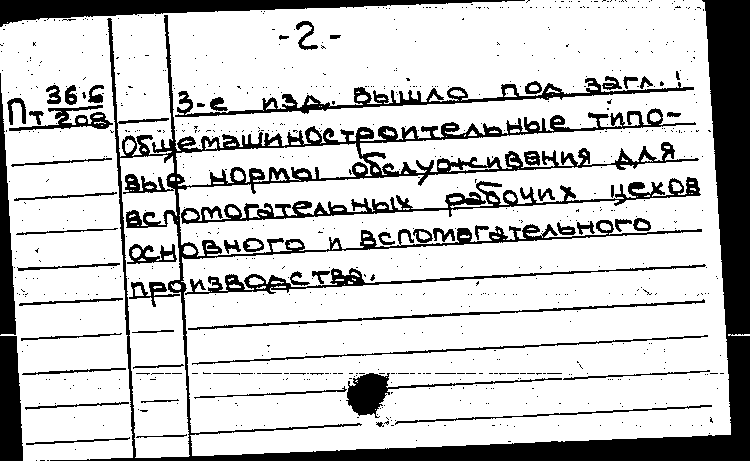 -2-
Пт 36·6/208
3-е изд. вышло под загл.:
Общемашиностроительные типо-
вые нормы обслуживания для
вспомогательных рабочих цехов
основного и вспомогательного
производства.